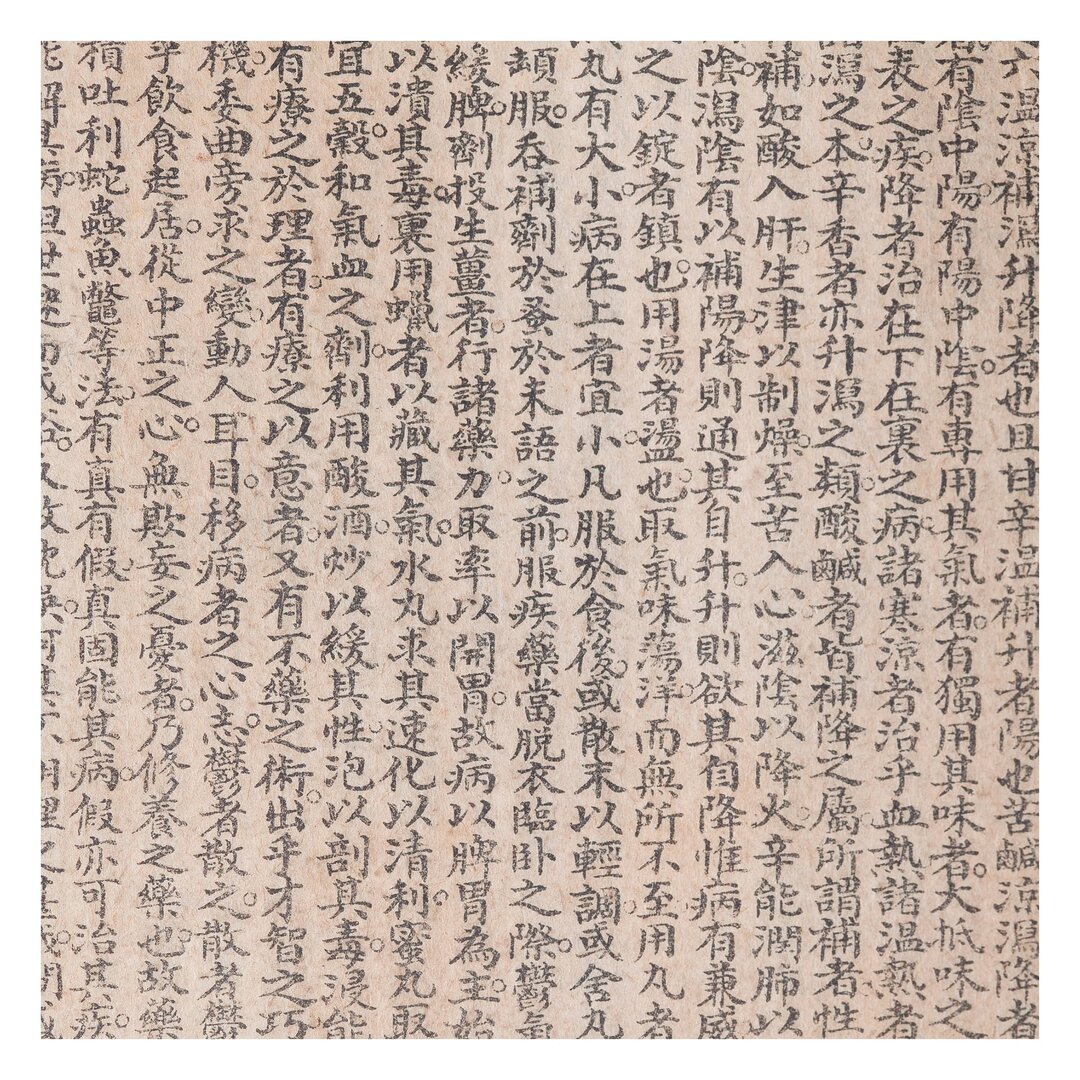 六温涼補瀉升降者也且甘辛温補升者陽也苦鹹涼瀉降者
有陰中陽。有陽中陰。有專用其氣者。有獨用其味者。大抵味之
表之疾。降者治在下在裏之病。諸寒涼者治乎血熱諸温熱者
瀉之。本辛香者亦升瀉之類。酸鹹者皆補降之屬。所謂補者。性
補。如酸入肝。生津以制燥。至苦入心。滋陰以降火。辛能潤肺以
陰。瀉陰有以補陽。降則通其自升。升則欲其自降惟病有兼威
之以錠者鎮。也用湯者盪。也取氣味蕩洋。而無所不至用丸者
丸有大小病在上者宜小凡服於食後。或散末以輕調。或舍丸
頡服。吞補劑於蚤於未語之前。服疾藥當脱衣臨卧之際。鬱氣
緩脾。劑投生薑者。行諸藥力。取率以開胃。故病以脾胃為主。始
以潰其毒。裏用蠟者以藏其氣。水丸求其速化以清利。蜜丸取
宜五。穀和氣血之劑。利用酸酒炒以緩其性。泡以剖其毒。浸能
有療之於理者。有療之以意者。又有不藥之術。出乎才智之巧
機。委曲旁求之變。動人耳目。移病者之心志。鬱者散之。散者鬱
乎飲食起居。從中正之心。無欺妄之憂者。乃修養之藥也。故藥
積吐利蛇蟲魚鼈等法。有真有假真固能其病。假亦可治其疾。